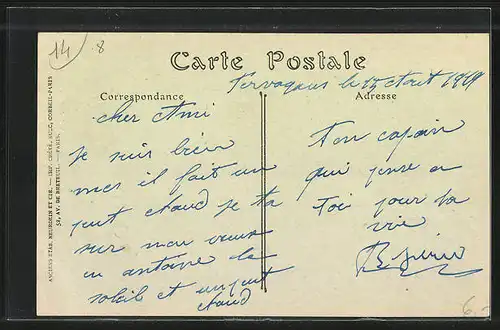 14 8
Carte Postale
le 15 Aout 1919
Correspondance
Adresse
cher Ami
Je suis bien
mes il fait un
peut chaud je ta
sur mon vieux
en antoine de
soleil et un peut
chaud
Ton copain
qui pense a
toi pour ta
vie
ANCIENS ETAB. NEURDEIN ET CIE. — IMP. CRÉTÉ, SUCC, CORBEIL-PARIS
52, AV. DE BRETEUIL. — PARIS.
6.-